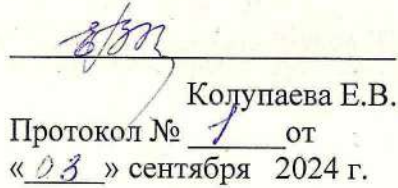 Колупаева Е.В.
Протокол № 1 от
«03» сентября 2024 г.